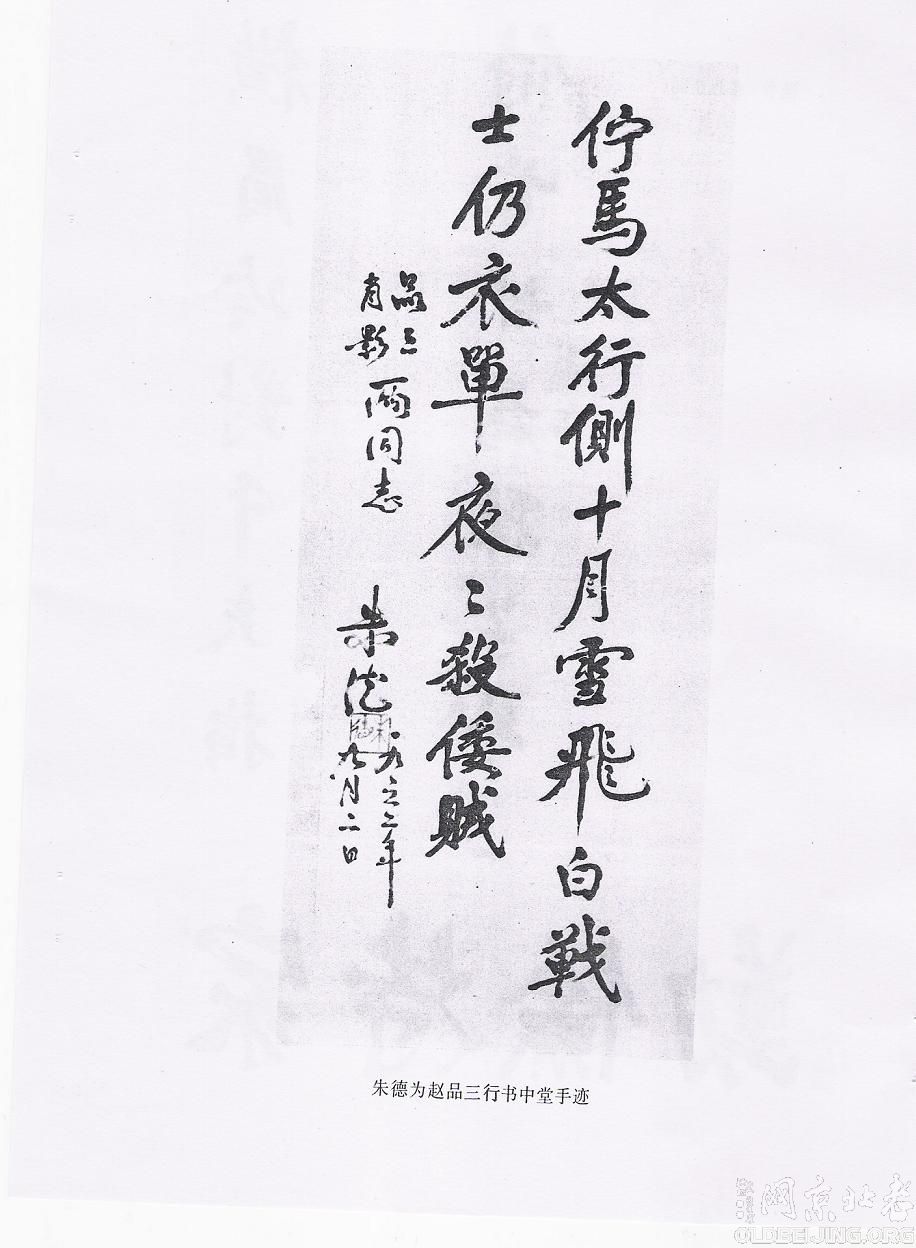 佇馬太行側十月雪飛白戰
士仍衣單夜〻殺倭賊
品三
肖影
兩同志
朱德
一九六二年
九月二日
朱德为赵品三行书中堂手迹
网京北老
OLDBEIJING.ORG